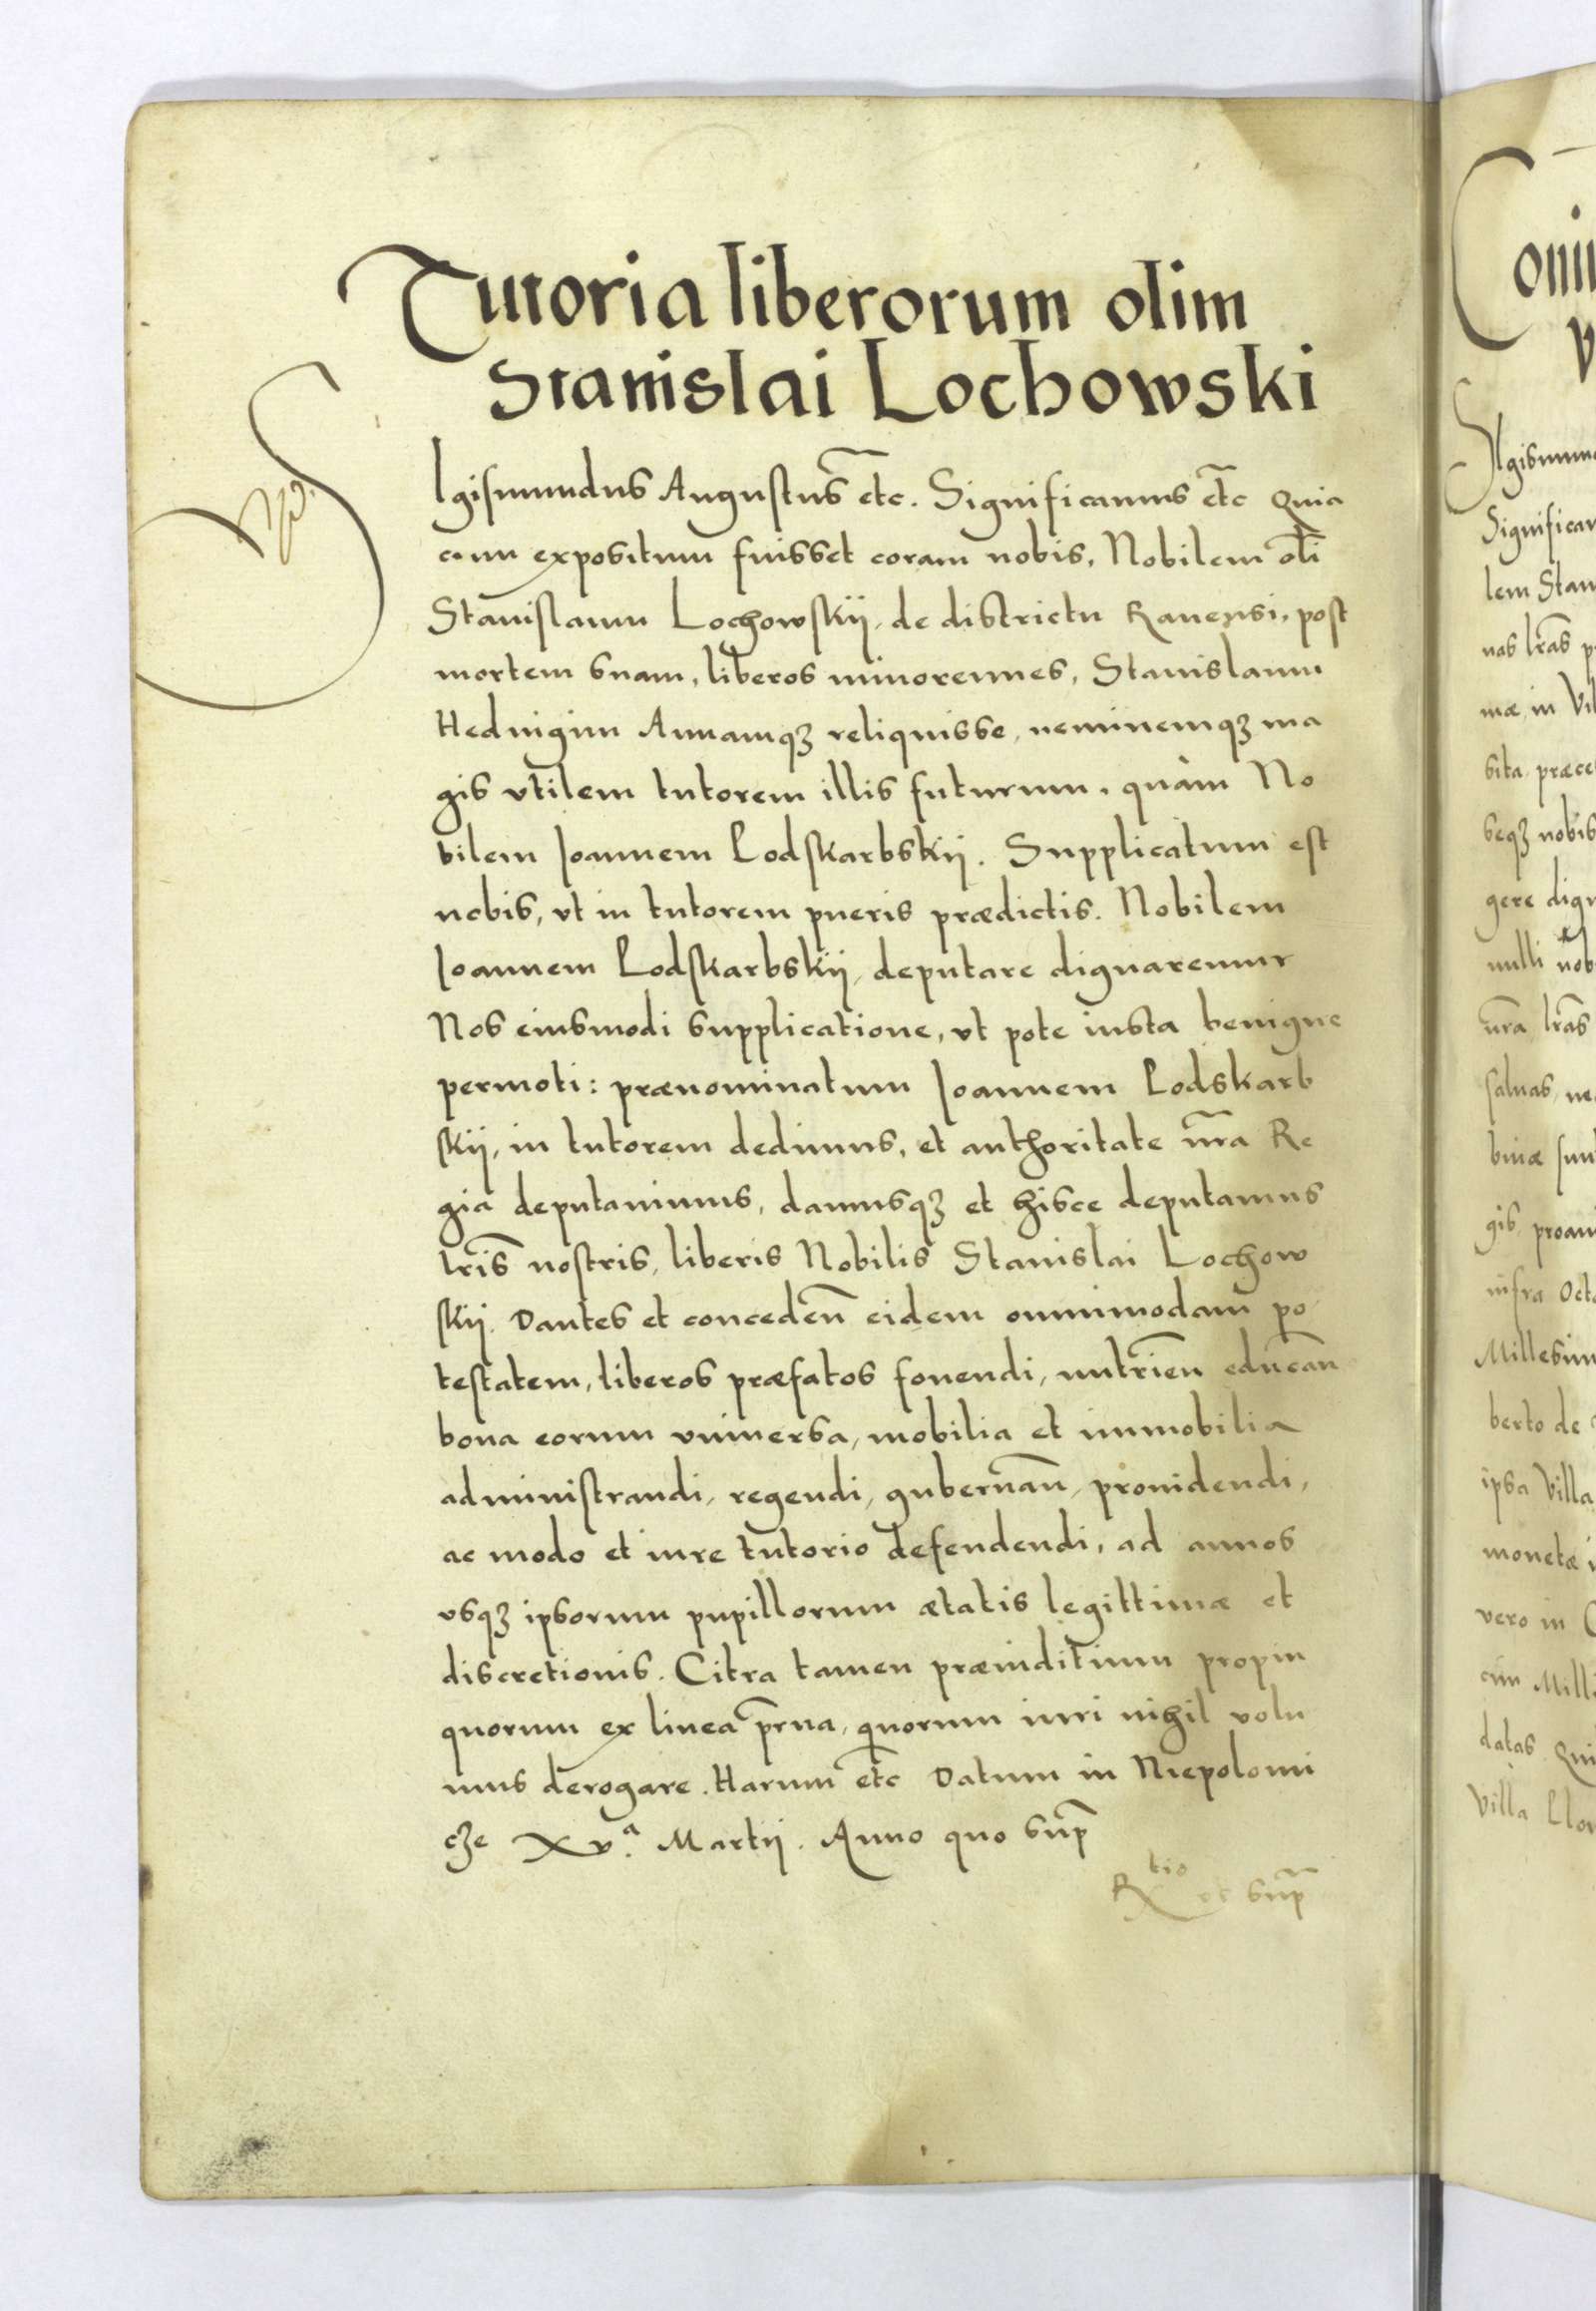 Tutoria liberorum olim
Stanislai Lochowski
SIgismundus Augustus etc. Significamus etc Quia
cum expositum fuisset coram nobis, Nobilem oli
Stanislaum Lochowskij, de districtu Rauensi, post
mortem suam, liberos minorennes, Stanislaum
Heduigim Annamqꝫ reliquisse, neminemqꝫ ma
gis vtilem tutorem illis futurum, quàm No
bilem Ioannem Lodskarbskij. Supplicatum est
nobis, vt in tutorem pueris prædictis. Nobilem
Ioannem Lodskarbskij, deputare dignaremur
Nos eiusmodi supplicatione, vt pote iusta benigne
permoti: prænominatum Ioannem Lodskarb
skij, in tutorem dedimus, et authoritate nr̃a Re
gia deputauimus, damusqꝫ et hisce deputamus
lr̃is nostris, liberis Nobilis Stanislai Lochow
skij. Dantes et conceden̄ eidem omnimodam po
testatem, liberos præfatos fouendi, nutrien̄ educan̄
bona eorum vniuersa, mobilia et immobilia
administrandi, regendi, gubernan̄, prouidendi,
ac modo et iure tutorio defendendi, ad annos
vsqꝫ ipsorum pupillorum ætatis legittimæ et
discretionis. Citra tamen præiuditium propin
quorum ex linea pr̃na, quorum iuri nihil volu
mus derogare. Harum etc Datum in Niepolomi
cze xv.ª Martij. Anno quo sup̃
Rtio vt sup̃
Comi
SIgismun
Significam
lem Stan
nas lr̃as
mæ, in
sita
seqꝫ nobis
gere dign
nulli nob
nr̃a lr̃as
saluas, ne
binæ sum
gis,
infra Octa
Millesim
berto de
ipsa Villa
monetæ
vero in
cim Milli
datas. Qui
Villa